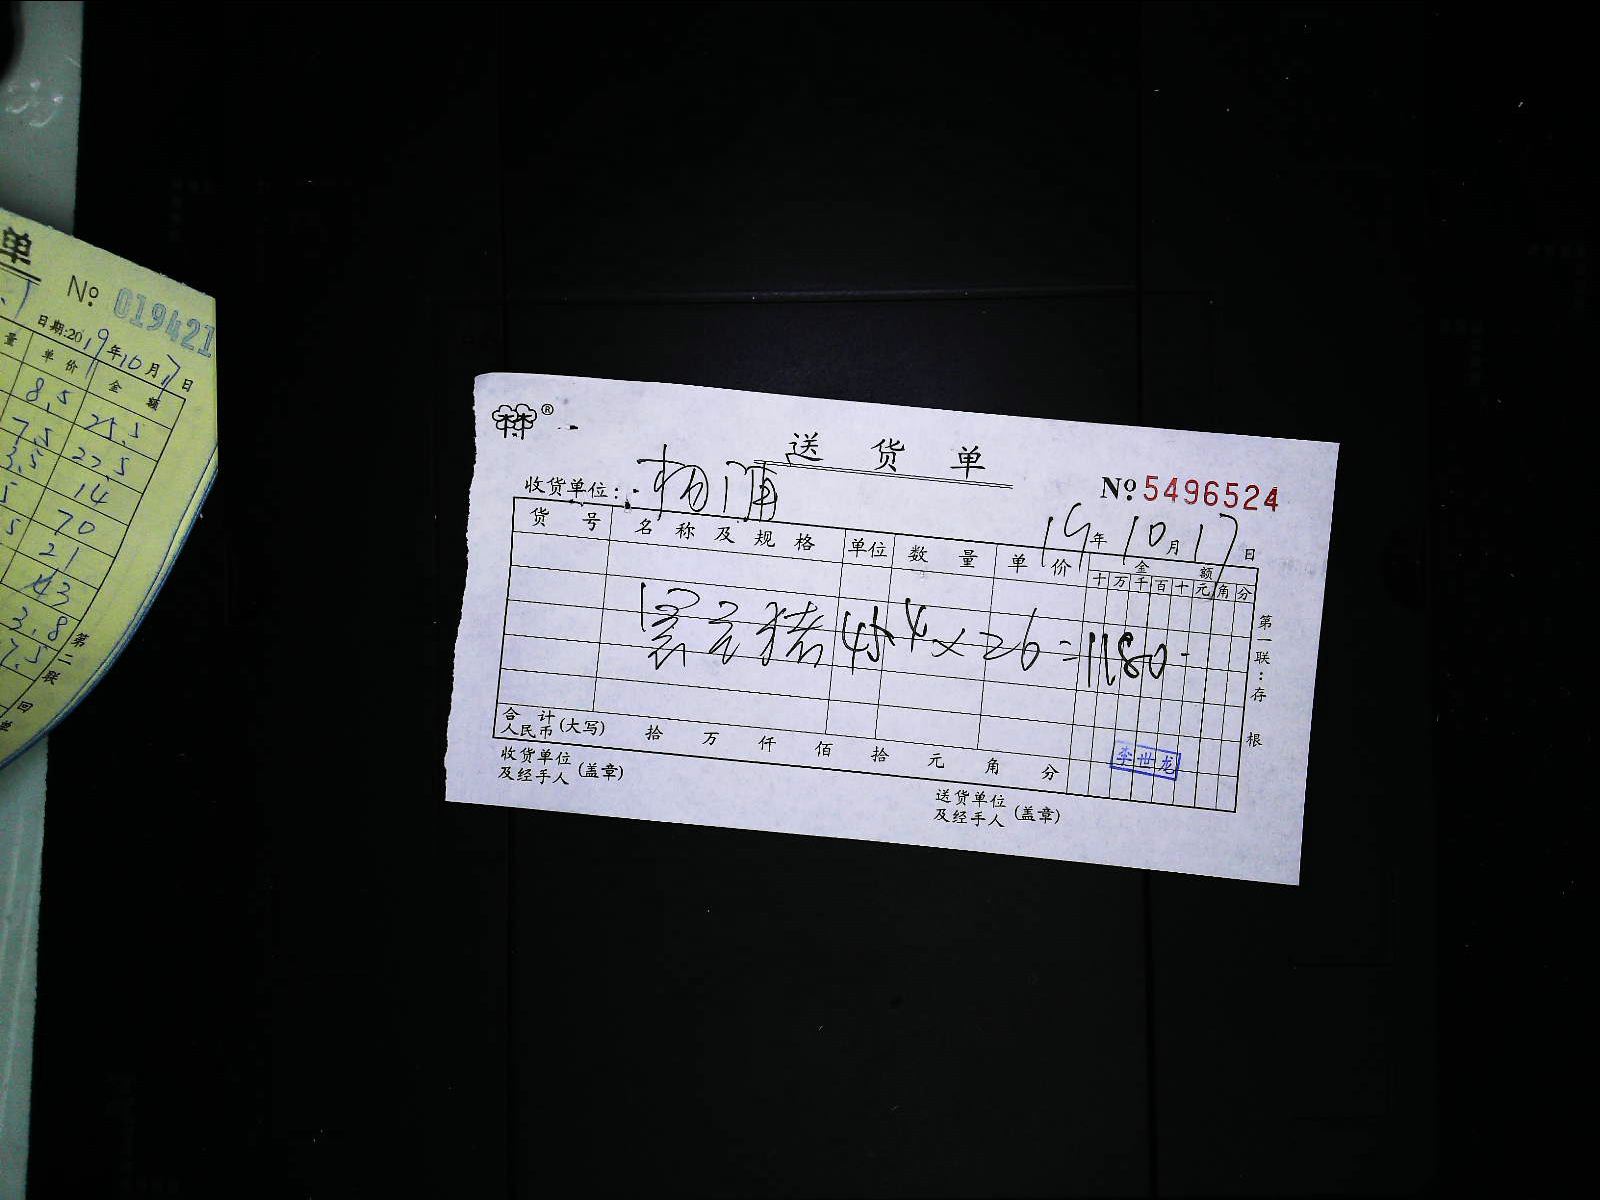 单
No 019421
日期:2019年10月17日
量 单价 金额
8.5 25.5
7.5 22.5
3.5 14
5 70
5 21
43
3.8
7.5
第二联
回
单
林林®
送货单
收货单位: 杨浦
No 5496524
19年10月17日
货号 名称及规格 单位 数量 单价 金额
十万千百十元角分
猪 45.4×26=1180-
合计
人民币(大写) 拾 万 仟 佰 拾 元 角 分
李世龙
收货单位
及经手人(盖章)
送货单位
及经手人(盖章)
第一联:存根